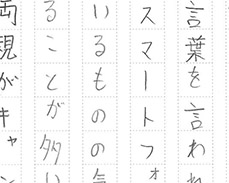 言葉を言われ
スマートフォ
いるものの気
ることが多い
両親がキャン